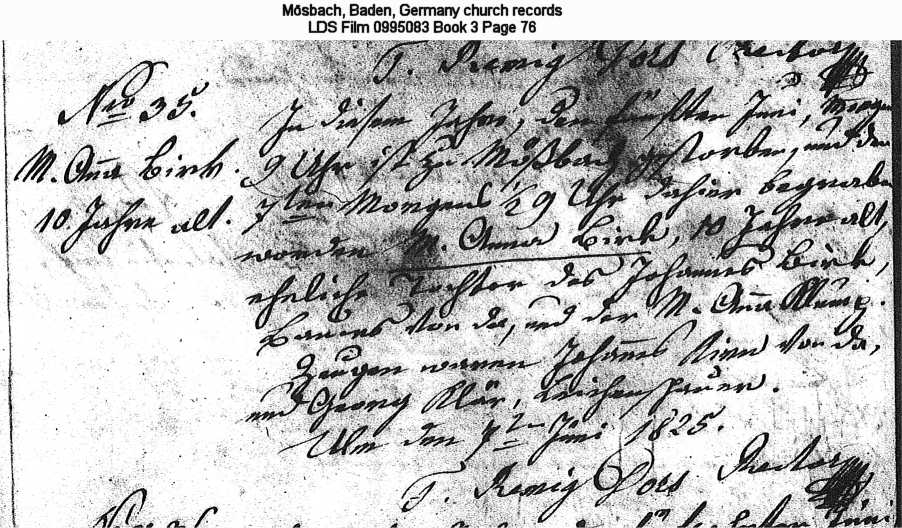 Mösbach, Baden, Germany church records
LDS Film 0995083 Book 3 Page 76
F. Remig Dors Rector
Nro 35.
M. Aña Birk.
10. Jahre alt.
In diesem Jahre, den fünften Juni, Morgens
9 Uhr ist zu Mößbach gestorben, und den
7ten Morgens 1/2 9 Uhr dahier begraben
worden M. Anna Birk, 10 Jahre alt,
eheliche Tochter des Johannes Birk,
Bauers von da, und der M. Aña
Zeugen waren Johañes von da,
und Georg Klär, Leichenschauer.
Ulm den 7ten Juni 1825.
F. Remig Dors Rector